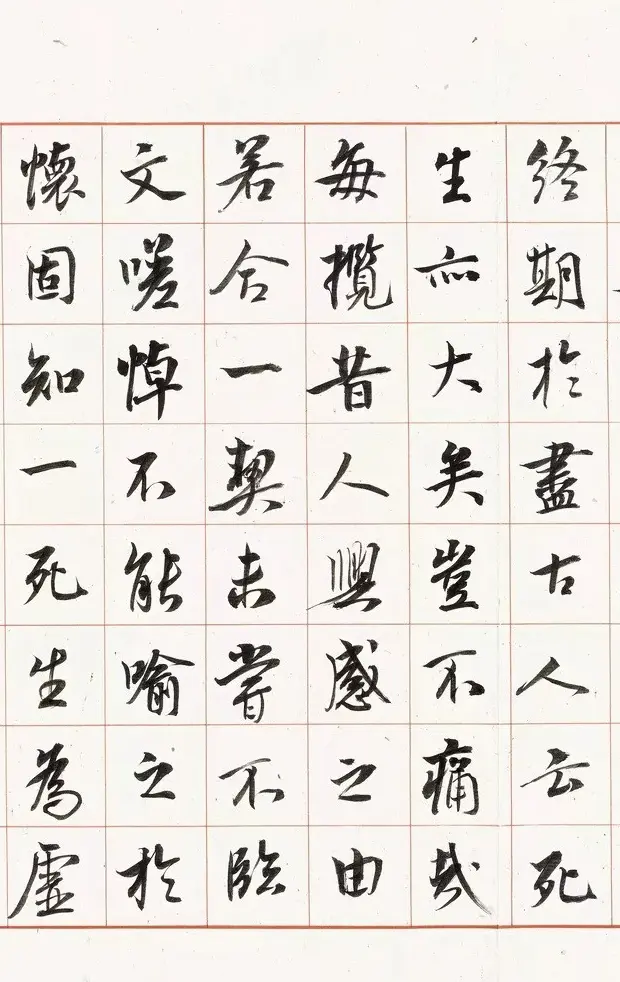 終期於盡古人云死
生亦大矣豈不痛哉
每攬昔人興感之由
若合一契未嘗不臨
文嗟悼不能喻之於
懷固知一死生為虛